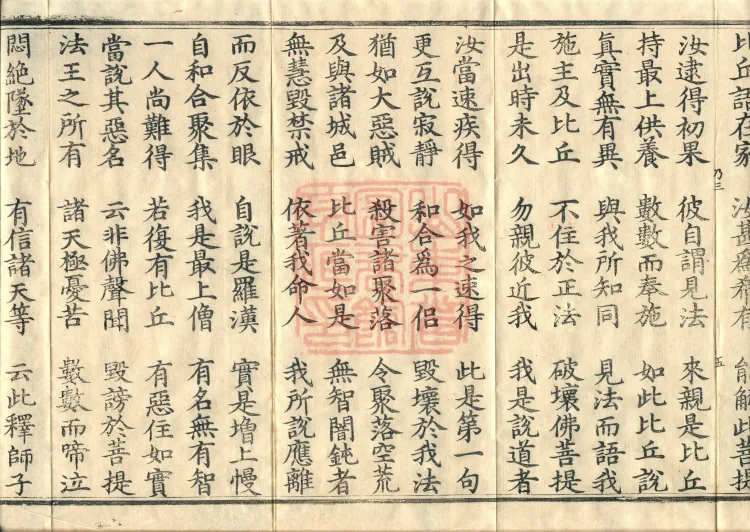 比丘語在家 汝甚為希有 能解此菩提
汝逮得初果 彼自謂見法 來親是比丘
持最上供養 數數而奉施 如此比丘說
真實無有異 與我所知同 見法而語我
施主及比丘 不住於正法 破壞佛菩提
是出時未久 勿親彼近我 我是說道者
汝當速疾得 如我之速得 此是第一句
更互說寂靜 和合為一侶 毀壞於我法
猶如大惡賊 殺害諸聚落 令聚落空荒
及與諸城邑 比丘當如是 無智闇鈍者
無慧毀禁戒 依著我命人 我所說應離
而反依於眼 自說是羅漢 實是增上慢
自和合聚集 我是最上僧 有名無有智
一人尚難得 若復有比丘 有惡住如實
當說其惡名 云非佛聲聞 毀謗於菩提
法王之所有 諸天極憂苦 數數而啼泣
悶絕墜於地 有信諸天等 云此釋師子